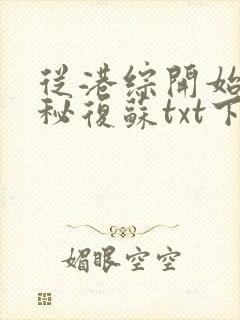 從港綜開始
秘復蘇txt下
媚眼空空